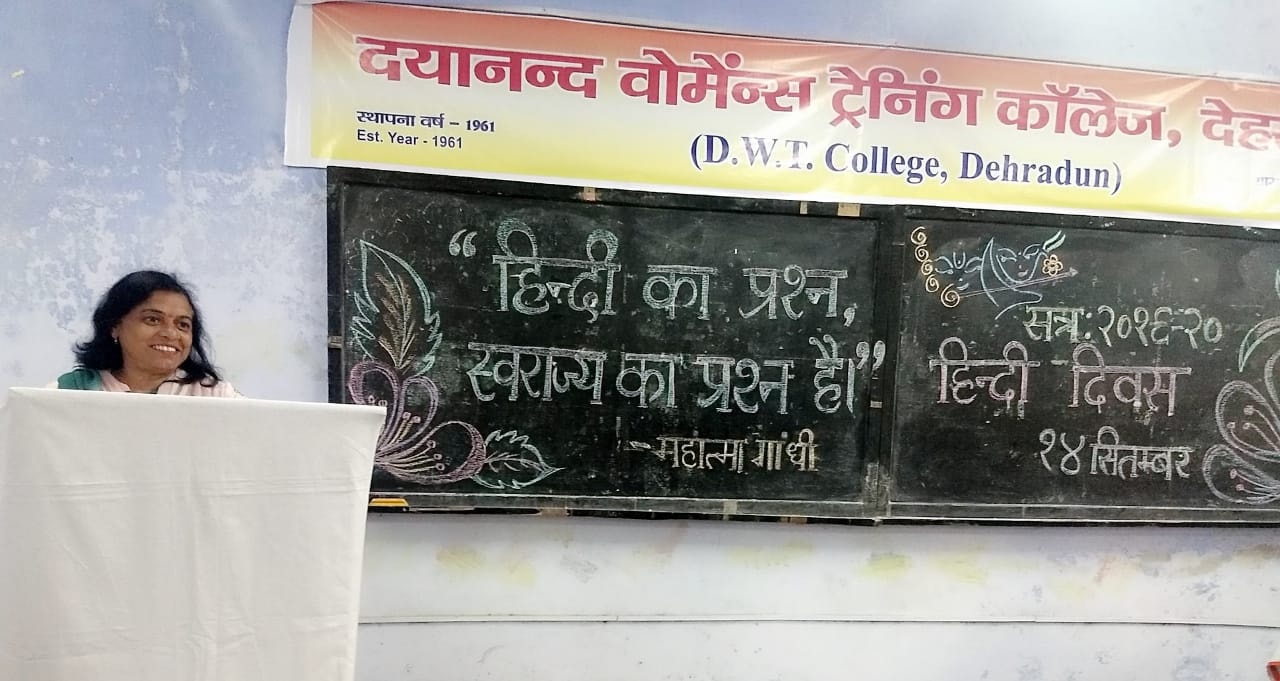 दयानन्द वोमेंन्स ट्रेनिंग कॉलेज,
स्थापना वर्ष – 1961
Est. Year - 1961
(D.W.T. College, Dehradun)
“ हिन्दी का प्रश्न,
स्वराज्य का प्रश्न है।”
- महात्मा गांधी
सत्र:२०१९-२०
हिन्दी दिवस
१४ सितम्बर